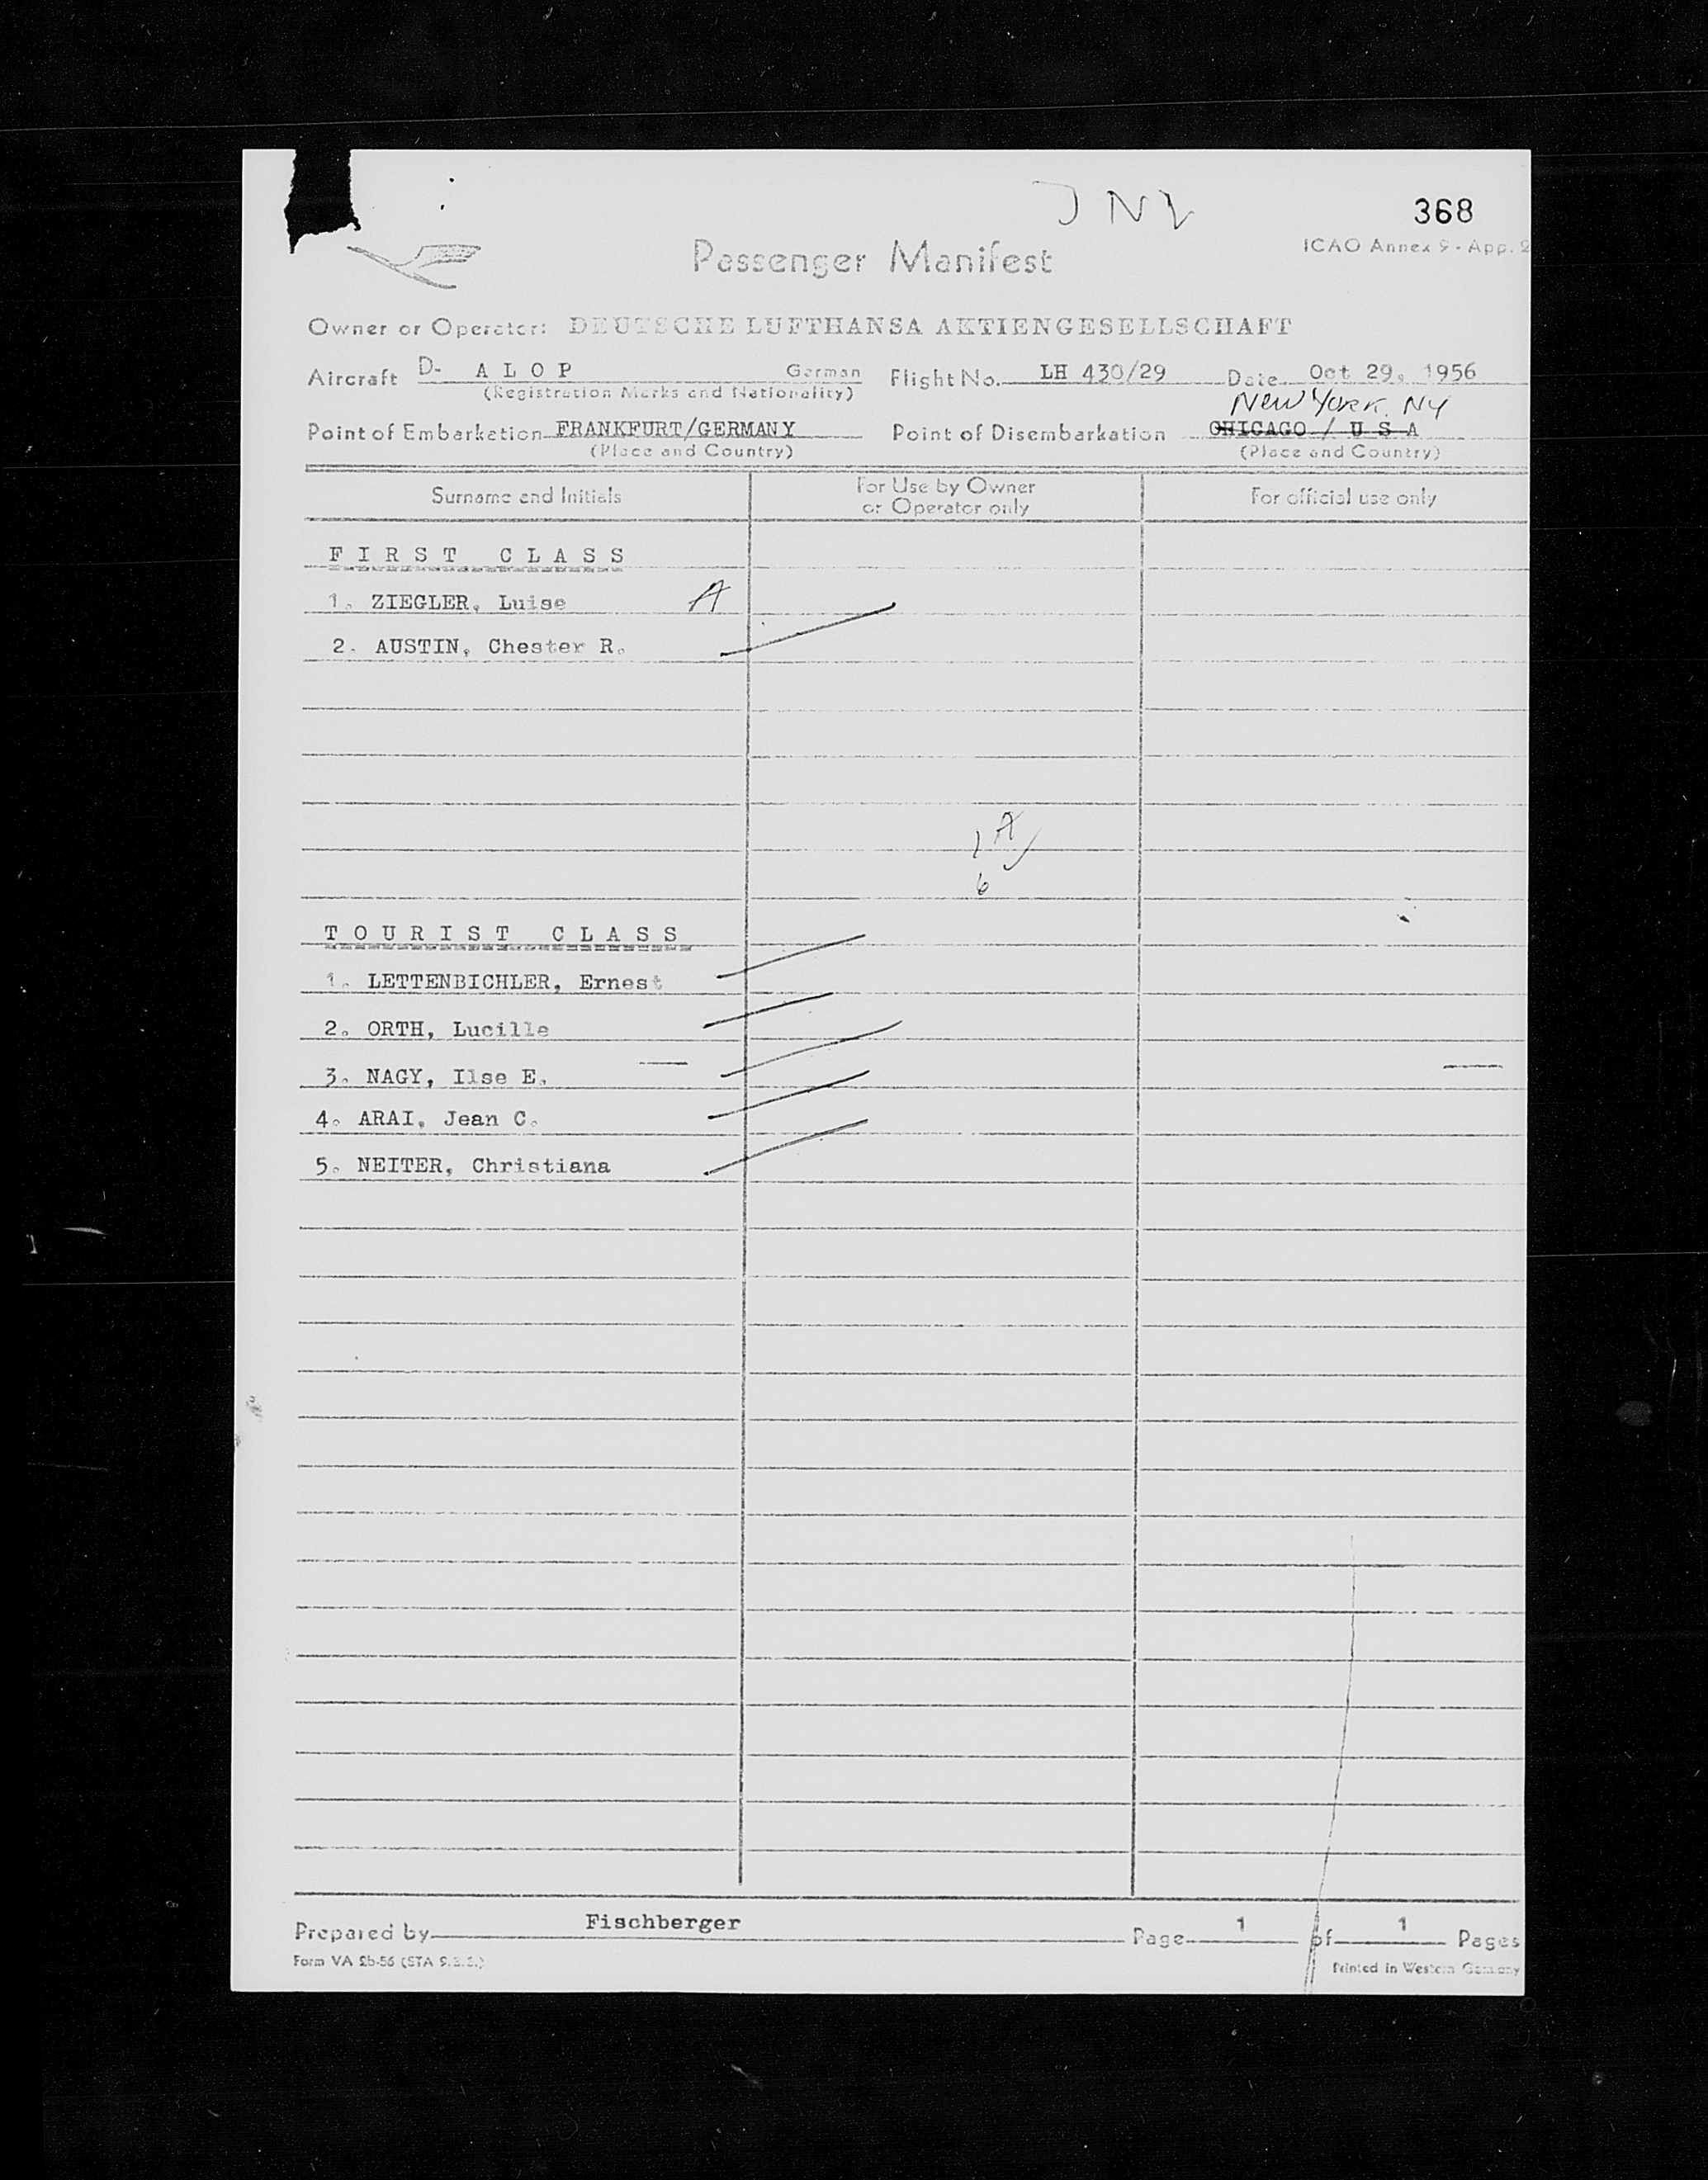 368
ICAO Annex 9 - App. 2
Passenger Manifest
Owner or Operator: DEUTSCHE LUFTHANSA AKTIENGESELLSCHAFT
Aircraft D- A L O P German Flight No. LH 430/29 Date Oct 29, 1956
(Registration Marks and Nationality)
New York, NY
Point of Embarkation FRANKFURT/GERMANY Point of Disembarkation CHICAGO / U S A
(Place and Country) (Place and Country)
Surname and Initials For Use by Owner or Operator only For official use only
F I R S T C L A S S
1. ZIEGLER, Luise A
2. AUSTIN, Chester R.
1 A
6
T O U R I S T C L A S S
1. LETTENBICHLER, Ernest
2. ORTH, Lucille
3. NAGY, Ilse E.
4. ARAI, Jean C.
5. NEITER, Christiana
Prepared by Fischberger Page 1 of 1 Pages
Form VA 2b-56 Printed in Western Germany